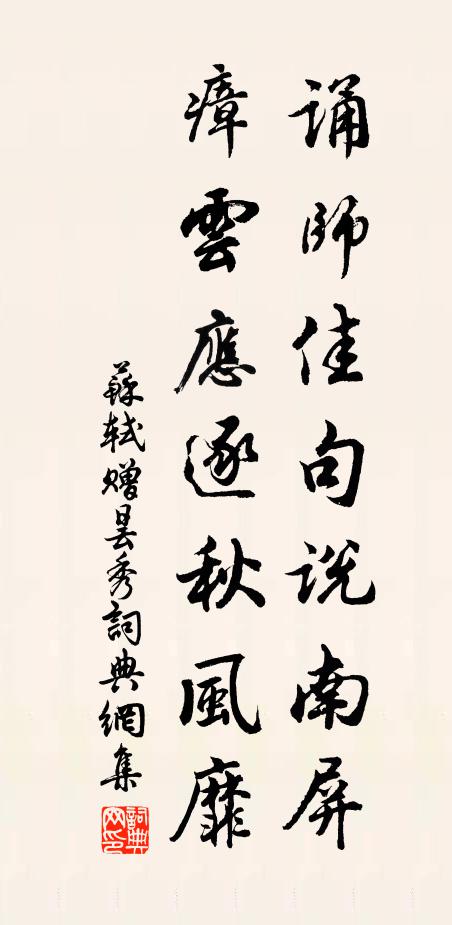 誦師佳句說南屏
瘴雲應逐秋風靡
蘇軾贈曇秀詞典網集
詞典網印